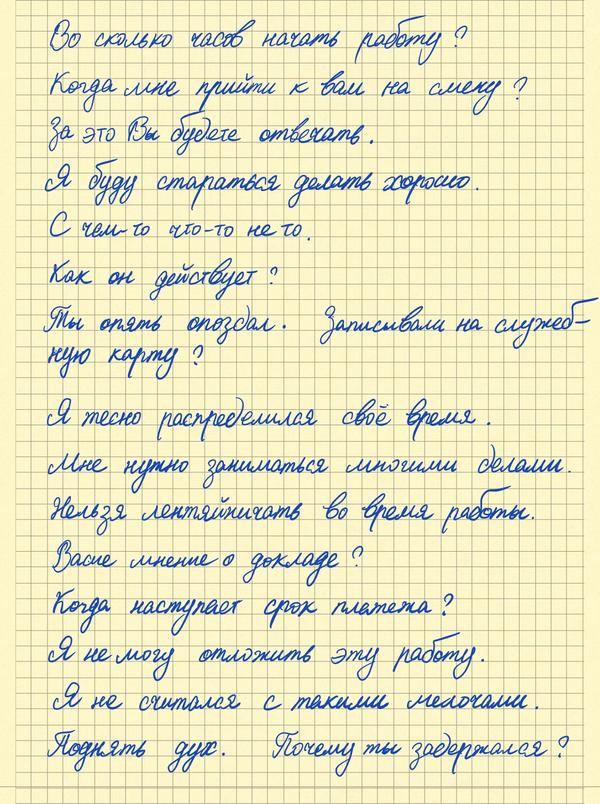 Во сколько часов начать работу?
Когда мне прийти к вам на смену?
За это Вы будете отвечать.
Я буду стараться делать хорошо.
С чем-то что-то не то.
Как он действует?
Ты опять опоздал. Записывали на служеб-
ную карту?
Я тесно распределился своё время.
Мне нужно заниматься многими делами.
Нельзя лентяйничать во время работы.
Ваше мнение о докладе?
Когда наступает срок платежа?
Я не могу отложить эту работу.
Я не считался с такими мелочами.
Поднять дух. Почему ты задержался?